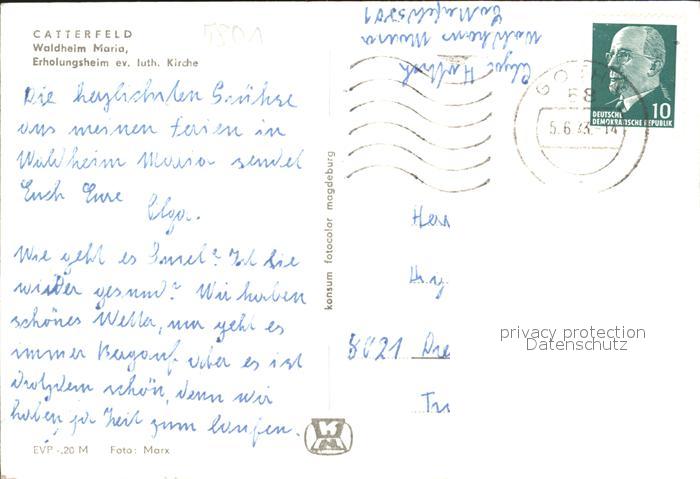 CATTERFELD
Waldheim Maria,
Erholungsheim ev. luth. Kirche
5801
Die herzlichsten Grühse
aus meinen Ferien in
Waldheim Maria sendet
Euch Eure
Olga.
Wie geht es Insel? Ist sie
wieder gesund? Wir haben
schönes Wetter, nur geht es
immer Bergauf aber es ist
trotzdem schön, denn wir
haben ja Zeit zum laufen.
EVP -.20 M Foto: Marx
konsum fotocolor magdeburg
Olga
Waldheim Maria
5801
58
5.6.73.-14
DEUTSCHE
DEMOKRATISCHE REPUBLIK
10
Herr
8021 Dre
privacy protection
Datenschutz